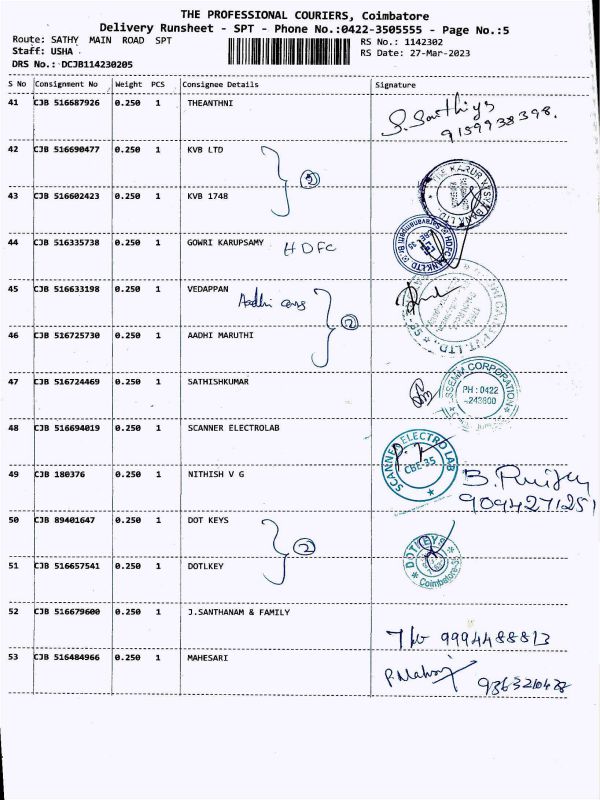 THE PROFESSIONAL COURIERS, Coimbatore
Delivery Runsheet - SPT - Phone No.:0422-3505555 - Page No.:5
Route: SATHY MAIN ROAD SPT
RS No.: 1142302
Staff: USHA
RS Date: 27-Mar-2023
DRS No.: DCJB114230205
S No Consignment No Weight PCS Consignee Details Signature
41 CJB 516687926 0.250 1 THEANTHNI
S. Santhiya
9159938398.
42 CJB 516690477 0.250 1 KVB LTD
43 CJB 516602423 0.250 1 KVB 1748
44 CJB 516335738 0.250 1 GOWRI KARUPSAMY HDFC
45 CJB 516633198 0.250 1 VEDAPPAN
Aadhi cars
2
46 CJB 516725730 0.250 1 AADHI MARUTHI
47 CJB 516724469 0.250 1 SATHISHKUMAR
CORPORATION
PH : 0422
48 CJB 516694019 0.250 1 SCANNER ELECTROLAB
SCANNER ELECTRO LAB
CBE-35
49 CJB 180376 0.250 1 NITHISH V G
9094271251
50 CJB 89401647 0.250 1 DOT KEYS
2
51 CJB 516657541 0.250 1 DOTLKEY
DOTLKEYS
Coimbatore-35
52 CJB 516679600 0.250 1 J.SANTHANAM & FAMILY
9994488813
53 CJB 516484966 0.250 1 MAHESARI
9363210428